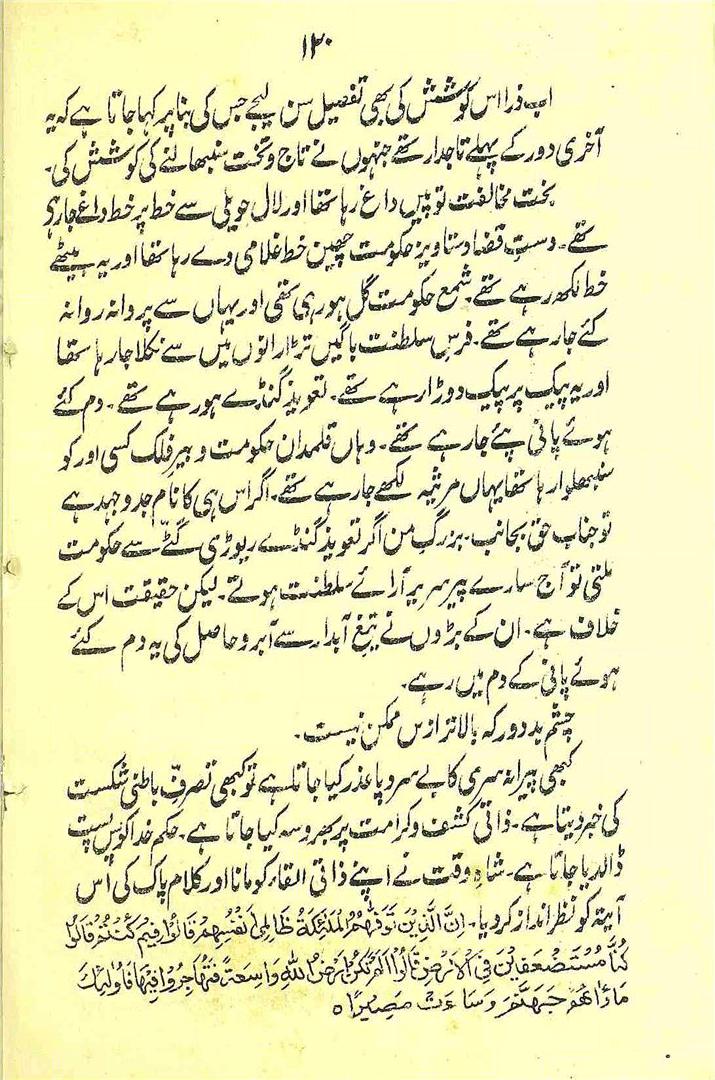 ۱۲۰
اب ذرا اس کوشش کی بھی تفصیل سن لیجے جس کی بنا پر کہا جاتا ہے کہ یہ
آخری دور کے پہلے تاجدار تھے جنہوں نے تاج و تخت سنبھالنے کی کوشش کی۔
بخت مخالفت توپیں داغ رہا تھا اور لال حویلی سے خط پر خط داغے جا رہے
تھے۔ دستِ قضا دستاویز حکومت چھین خط غلامی دے رہا تھا اور یہ بیٹھے
خط لکھ رہے تھے۔ شمع حکومت گل ہو رہی تھی اور یہاں سے پروانہ روانہ
کئے جا رہے تھے۔ فرسِ سلطنت باگیں تڑا رانوں میں سے نکلا جا رہا تھا
اور یہ پیک پر پیک دوڑا رہے تھے۔ تعویذ گنڈے ہو رہے تھے۔ دم کئے
ہوئے پانی پئے جا رہے تھے۔ وہاں قلمدان حکومت دبیر فلک کسی اور کو
سنبھلوا رہا تھا یہاں مرثیہ لکھے جا رہے تھے۔ اگر اس ہی کا نام جدوجہد ہے
تو جناب حق بجانب۔ بزرگِ من اگر تعویذ گنڈے ریوڑی گٹے سے حکومت
ملتی تو آج سارے پیر سریر آرائے سلطنت ہوتے۔ لیکن حقیقت اس کے
خلاف ہے۔ ان کے بڑوں نے تیغِ آبدار سے آبرو حاصل کی یہ دم کئے
ہوئے پانی کے دم میں رہے۔
چشم بد دور کہ بالاتر ازیں ممکن نیست۔
کبھی پیرانہ سری کا بے سروپا عذر کیا جاتا ہے تو کبھی تصرفِ باطنی شکست
کی خبر دیتا ہے۔ ذاتی کشف و کرامت پر بھروسہ کیا جاتا ہے۔ حکم خدا کو پس پشت
ڈالدیا جاتا ہے۔ شاہِ وقت نے اپنے ذاتی القاء کو مانا اور کلام پاک کی اس
آیۃ کو نظر انداز کر دیا۔ اِنَّ الَّذِیْنَ تَوَفّٰهُمُ الْمَلٰٓئِکَةُ ظَالِمِیْٓ اَنْفُسِهِمْ قَالُوْا فِیْمَ کُنْتُمْ قَالُوْا
کُنَّا مُسْتَضْعَفِیْنَ فِی الْاَرْضِ قَالُوْٓا اَلَمْ تَکُنْ اَرْضُ اللهِ وَاسِعَةً فَتُهَاجِرُوْا فِیْهَا فَاُولٰٓئِکَ
مَاْوٰهُمْ جَهَنَّمُ وَسَآءَتْ مَصِیْرًا ٥